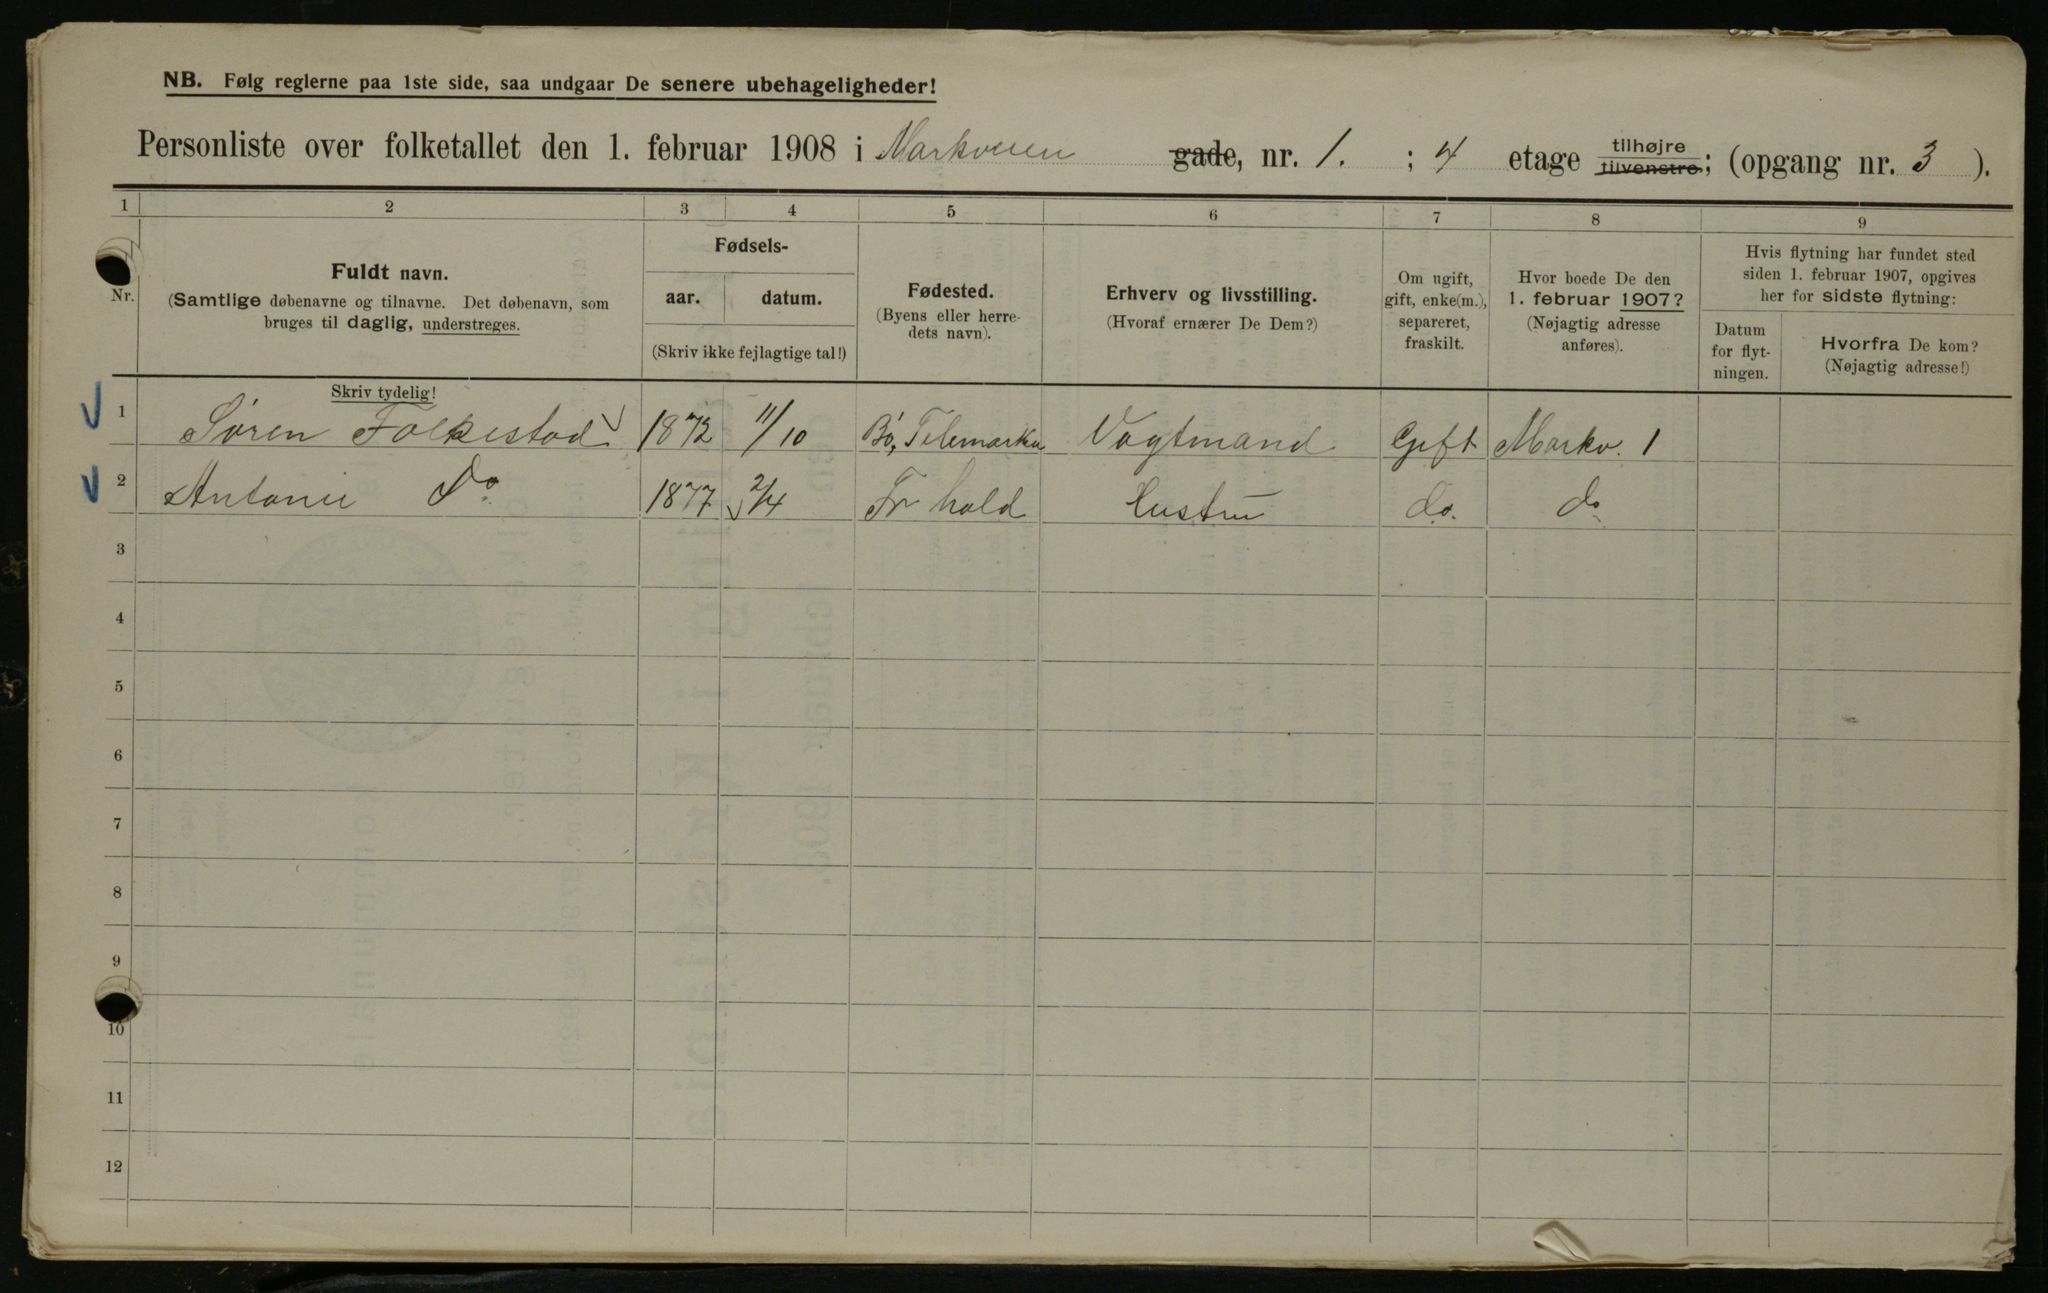 NB. Følg reglerne paa 1ste side, saa undgaar De senere ubehageligheder!
Personliste over folketallet den 1. februar 1908 i Markveien gade, nr. 1. ; 4 etage tilhøjre tilvenstre; (opgang nr. 3 ).
1 2 3 4 5 6 7 8 9
Nr.
Fuldt navn.
(Samtlige døbenavne og tilnavne. Det døbenavn, som
bruges til daglig, understreges.
Fødsels-
aar. datum.
(Skriv ikke fejlagtige tal!)
Fødested.
(Byens eller herre-
dets navn).
Erhverv og livsstilling.
(Hvoraf ernærer De Dem?)
Om ugift,
gift, enke(m.),
separeret,
fraskilt.
Hvor boede De den
1. februar 1907?
(Nøjagtig adresse
anføres).
Hvis flytning har fundet sted
siden 1. februar 1907, opgives
her for sidste flytning:
Datum
for flyt-
ningen.
Hvorfra De kom?
(Nøjagtig adresse!)
Skriv tydelig!
1 Søren Folkestad 1872 11/10 Bø, Telemarken Vagtmand Gift Markv. 1
2 Antonie Do 1877 2/4 Fr hald Hustru do. do
3
4
5
6
7
8
9
10
11
12